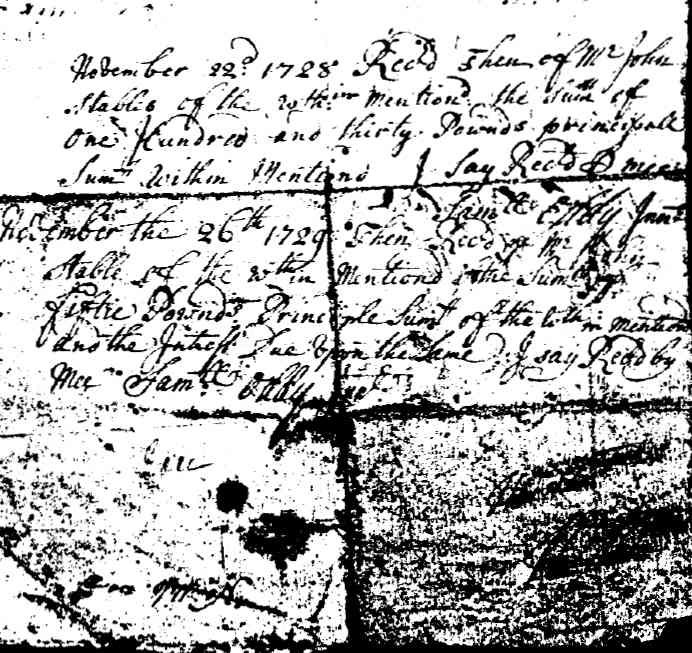 November 22d 1728 Recd then of Mr John
Stables of the within Mentiond the Sum of
One Hundred and thirty Pounds principall
Sum within Mentiond I say Recd P mee
Samll
November the 26th 1729 Then Recd of Mr
Stable of the within Mentiond the Sum of
fiftie Pounds Principle Sum of the within mentiond
and the Intrest Due Upon the Same I say Recd by
Mee Samll